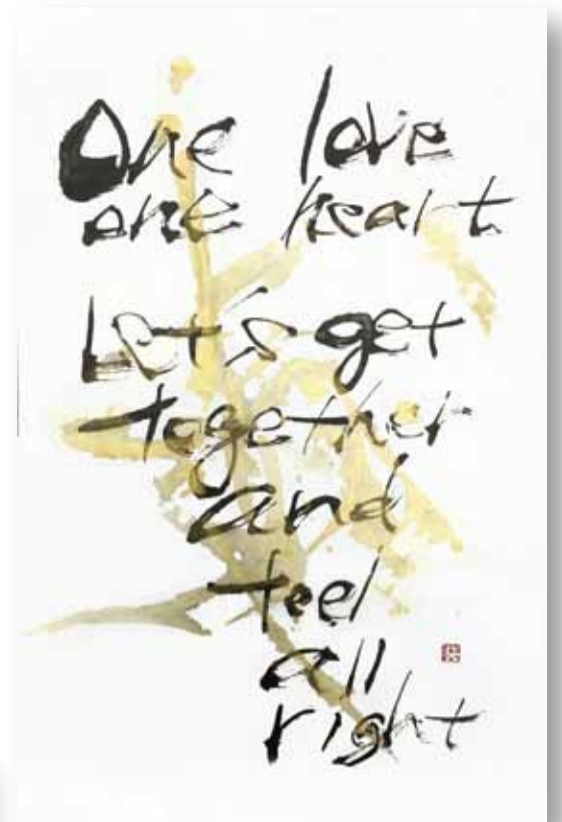 One love
one heart
Let's get
together
and
feel
all
right